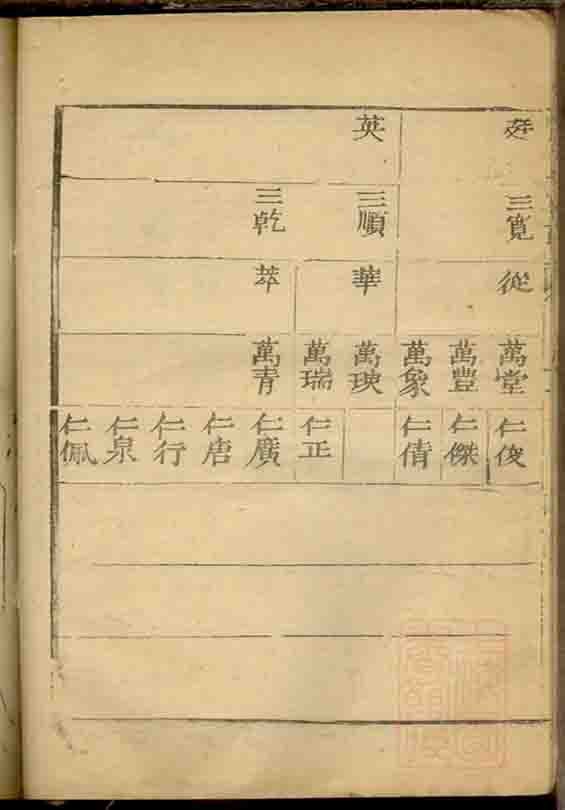 英
三寬 三順 三乾
從 華 萃
萬堂 萬豐 萬象 萬瑛 萬瑞 萬青
仁俊 仁傑 仁倩 仁正 仁廣 仁唐 仁行 仁泉 仁佩